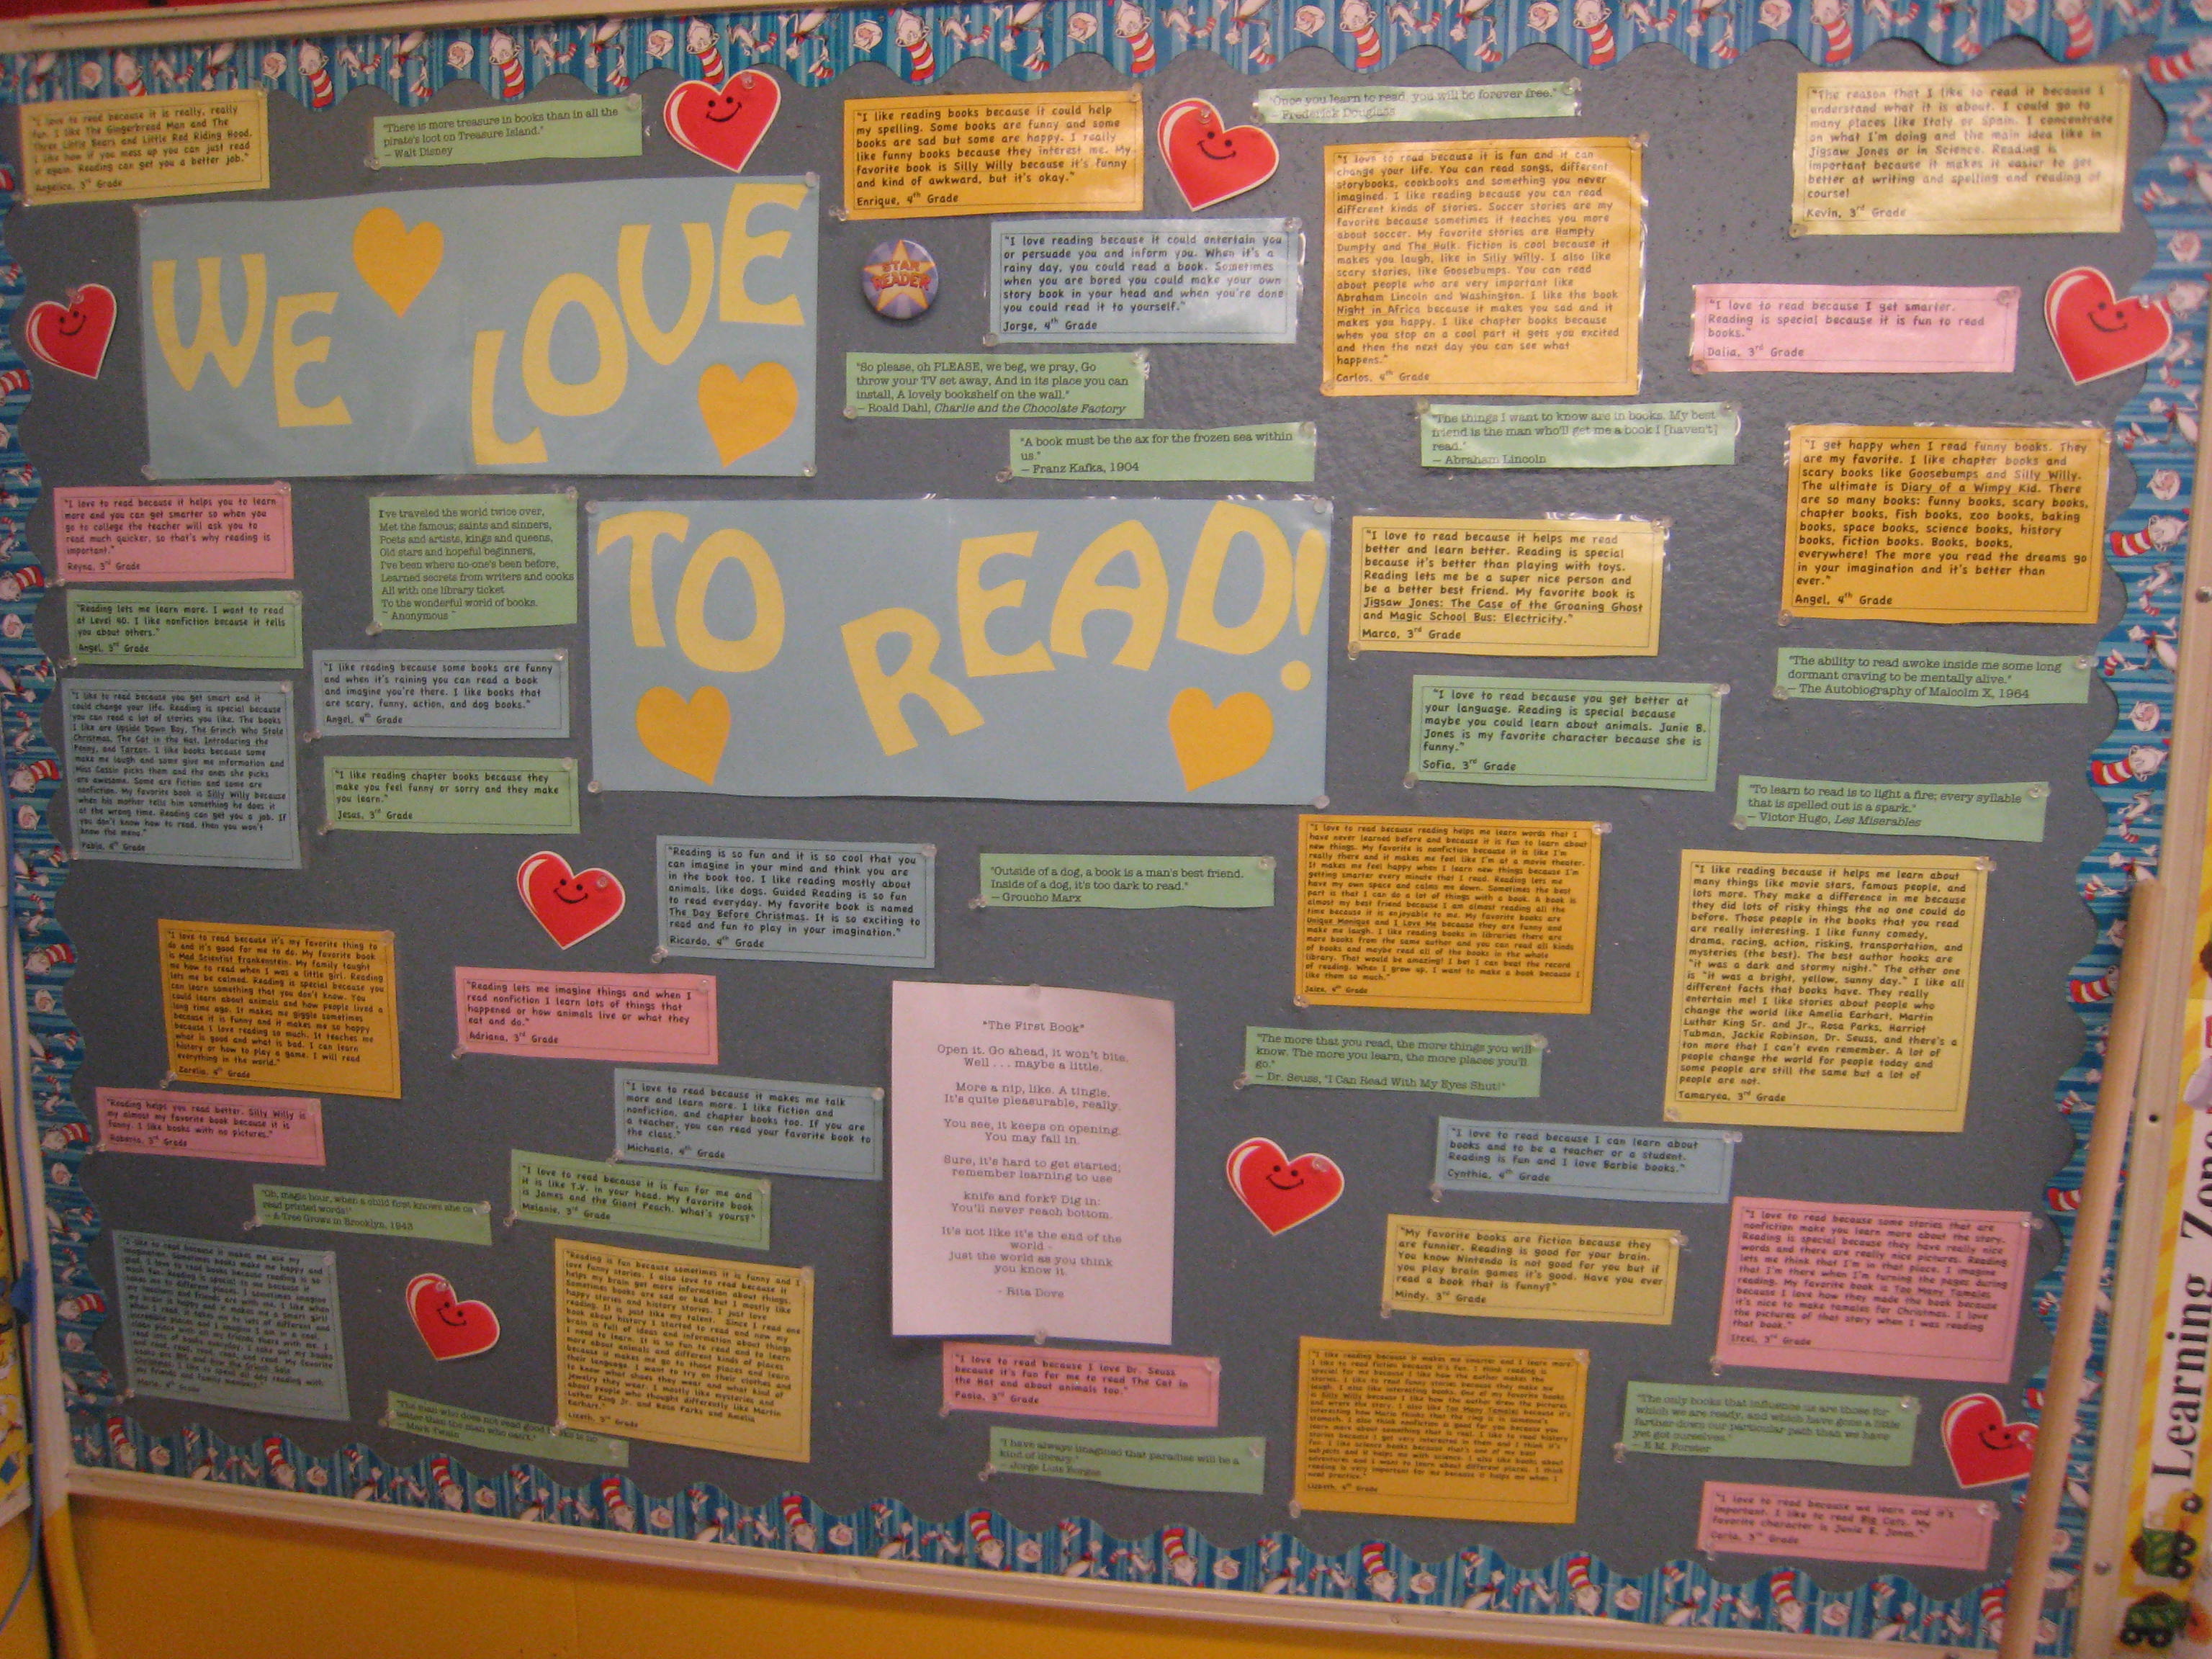 "I love to read because it is really, really
fun. I like The Gingerbread Man and The
Three Little Bears and Little Red Riding Hood.
I like how if you mess up you can just read
it again. Reading can get you a better job."
Angelica, 3rd Grade
"There is more treasure in books than in all the
pirate's loot on Treasure Island."
– Walt Disney
"I like reading books because it could help
my spelling. Some books are funny and some
books are sad but some are happy. I really
like funny books because they interest me. My
favorite book is Silly Willy because it's funny
and kind of awkward, but it's okay."
Enrique, 4th Grade
"Once you learn to read, you will be forever free."
– Frederick Douglass
"I love to read because it is fun and it can
change your life. You can read songs, different
storybooks, cookbooks and something you never
imagined. I like reading because you can read
different kinds of stories. Soccer stories are my
favorite because sometimes it teaches you more
about soccer. My favorite stories are Humpty
Dumpty and The Hulk. Fiction is cool because it
makes you laugh, like in Silly Willy. I also like
scary stories, like Goosebumps. You can read
about people who are very important like
Abraham Lincoln and Washington. I like the book
Night in Africa because it makes you sad and it
makes you happy. I like chapter books because
when you stop on a cool part it gets you excited
and then the next day you can see what
happens."
Carlos, 4th Grade
"The reason that I like to read it because I
understand what it is about. I could go to
many places like Italy or Spain. I concentrate
on what I'm doing and the main idea like in
Jigsaw Jones or in Science. Reading is
important because it makes it easier to get
better at writing and spelling and reading of
course!
Kevin, 3rd Grade
WE LOVE
STAR
READER
"I love reading because it could entertain you
or persuade you and inform you. When it's a
rainy day, you could read a book. Sometimes
when you are bored you could make your own
story book in your head and when you're done
you could read it to yourself."
Jorge, 4th Grade
"I love to read because I get smarter.
Reading is special because it is fun to read
books."
Dalia, 3rd Grade
"So please, oh PLEASE, we beg, we pray, Go
throw your TV set away, And in its place you can
install, A lovely bookshelf on the wall."
– Roald Dahl, Charlie and the Chocolate Factory
"A book must be the ax for the frozen sea within
us."
– Franz Kafka, 1904
"The things I want to know are in books. My best
friend is the man who'll get me a book I [haven't]
read."
– Abraham Lincoln
"I get happy when I read funny books. They
are my favorite. I like chapter books and
scary books like Goosebumps and Silly Willy.
The ultimate is Diary of a Wimpy Kid. There
are so many books: funny books, scary books,
chapter books, fish books, zoo books, baking
books, space books, science books, history
books, fiction books. Books, books,
everywhere! The more you read the dreams go
in your imagination and it's better than
ever."
Angel, 4th Grade
"I love to read because it helps you to learn
more and you can get smarter so when you
go to college the teacher will ask you to
read much quicker, so that's why reading is
important."
Reyna, 3rd Grade
I've traveled the world twice over,
Met the famous; saints and sinners,
Poets and artists, kings and queens,
Old stars and hopeful beginners,
I've been where no-one's been before,
Learned secrets from writers and cooks
All with one library ticket
To the wonderful world of books.
~ Anonymous ~
TO READ!
"I love to read because it helps me read
better and learn better. Reading is special
because it's better than playing with toys.
Reading lets me be a super nice person and
be a better best friend. My favorite book is
Jigsaw Jones: The Case of the Groaning Ghost
and Magic School Bus: Electricity."
Marco, 3rd Grade
"Reading lets me learn more. I want to read
at Level 40. I like nonfiction because it tells
you about others."
Angel, 3rd Grade
"I like reading because some books are funny
and when it's raining you can read a book
and imagine you're there. I like books that
are scary, funny, action, and dog books."
Angel, 4th Grade
"The ability to read awoke inside me some long
dormant craving to be mentally alive."
– The Autobiography of Malcolm X, 1964
"I love to read because you get better at
your language. Reading is special because
maybe you could learn about animals. Junie B.
Jones is my favorite character because she is
funny."
Sofia, 3rd Grade
"I like to read because you get smart and it
could change your life. Reading is special because
you can read a lot of stories you like. The books
I like are Upside Down Boy, The Grinch Who Stole
Christmas, The Cat in the Hat, Introducing the
Penny, and Tarzan. I like books because some
make me laugh and some give me information and
Miss Cassin picks them and the ones she picks
are awesome. Some are fiction and some are
nonfiction. My favorite book is Silly Willy because
when his mother tells him something he does it
at the wrong time. Reading can get you a job. If
you don't know how to read, then you won't
know the menu."
Pablo, 4th Grade
"I like reading chapter books because they
make you feel funny or sorry and they make
you learn."
Jesus, 3rd Grade
"To learn to read is to light a fire; every syllable
that is spelled out is a spark."
– Victor Hugo, Les Miserables
"Reading is so fun and it is so cool that you
can imagine in your mind and think you are
in the book too. I like reading mostly about
animals, like dogs. Guided Reading is so fun
to read everyday. My favorite book is named
The Day Before Christmas. It is so exciting to
read and fun to play in your imagination."
Ricardo, 4th Grade
"Outside of a dog, a book is a man's best friend.
Inside of a dog, it's too dark to read."
– Groucho Marx
"I love to read because reading helps me learn words that I
have never learned before and it is fun to learn about
new things. My favorite is nonfiction because it is like I'm
really there and it makes me feel like I'm at a movie theater.
It makes me feel happy when I learn new things because I'm
getting smarter every minute that I read. Reading lets me
have my own space and calms me down. Sometimes the best
part is that I can do a lot of things with a book. A book is
almost my best friend because I am almost reading all the
time because it is enjoyable to me. My favorite books are
Unique Monique and I Love Me because they are funny and
make me laugh. I like reading books in libraries there are
more books from the same author and you can read all kinds
of books and maybe read all of the books in the whole
library. That would be amazing! I bet I can beat the record
of reading. When I grow up, I want to make a book because I
like them so much."
4th Grade
"I like reading because it helps me learn about
many things like movie stars, famous people, and
lots more. They make a difference in me because
they did lots of risky things the no one could do
before. Those people in the books that you read
are really interesting. I like funny comedy,
drama, racing, action, risking, transportation, and
mysteries (the best). The best author hooks are
"it was a dark and stormy night." The other one
is "it was a bright, yellow, sunny day." I like all
different facts that books have. They really
entertain me! I like stories about people who
change the world like Amelia Earhart, Martin
Luther King Sr. and Jr., Rosa Parks, Harriot
Tubman, Jackie Robinson, Dr. Seuss, and there's a
ton more that I can't even remember. A lot of
people change the world for people today and
some people are still the same but a lot of
people are not.
Tamaryea, 3rd Grade
"I love to read because it's my favorite thing to
do and it's good for me to do. My favorite book
is Mad Scientist Frankenstein. My family taught
me how to read when I was a little girl. Reading
lets me be calmed. Reading is special because you
can learn something that you don't know. You
could learn about animals and how people lived a
long time ago. It makes me giggle sometimes
because it is funny and it makes me so happy
because I love reading so much. It teaches me
what is good and what is bad. I can learn
history or how to play a game. I will read
everything in the world."
4th Grade
"Reading lets me imagine things and when I
read nonfiction I learn lots of things that
happened or how animals live or what they
eat and do."
Adriana, 3rd Grade
"The First Book"
Open it. Go ahead, it won't bite.
Well . . . maybe a little.
More a nip, like. A tingle.
It's quite pleasurable, really.
You see, it keeps on opening.
You may fall in.
Sure, it's hard to get started;
remember learning to use
knife and fork? Dig in:
You'll never reach bottom.
It's not like it's the end of the
world -
just the world as you think
you know it.
- Rita Dove
"The more that you read, the more things you will
know. The more you learn, the more places you'll
go."
– Dr. Seuss, "I Can Read With My Eyes Shut!"
"Reading helps you read better. Silly Willy is
my almost my favorite book because it is
funny. I like books with no pictures."
Roberto, 3rd Grade
"I love to read because it makes me talk
more and learn more. I like fiction and
nonfiction, and chapter books too. If you are
a teacher, you can read your favorite book to
the class."
Michaela, 4th Grade
"I love to read because I can learn about
books and to be a teacher or a student.
Reading is fun and I love Barbie books."
Cynthia, 4th Grade
"I love to read because it is fun for me and
it is like T.V. in your head. My favorite book
is James and the Giant Peach. What's yours?"
Melanie, 3rd Grade
"Oh, magic hour, when a child first knows she can
read printed words!"
– A Tree Grows in Brooklyn, 1943
"My favorite books are fiction because they
are funnier. Reading is good for your brain.
You know Nintendo is not good for you but if
you play brain games it's good. Have you ever
read a book that is funny?"
Mindy, 3rd Grade
"I love to read because some stories that are
nonfiction make you learn more about the story.
Reading is special because they have really nice
words and there are really nice pictures. Reading
lets me think that I'm in that place. I imagine
that I'm there when I'm turning the pages during
reading. My favorite book is Too Many Tamales
because I love how they made the book because
it's nice to make tamales for Christmas. I love
the pictures of that story when I was reading
that book."
3rd Grade
"Reading is fun because sometimes it is funny and I
love funny stories. I also love to read because it
helps my brain get more information about things.
Sometimes books are sad or bad but I mostly like
happy stories and history stories. I just love
reading. It is just like my talent. Since I read one
book about history I started to read and now my
brain is full of ideas and information about things
I need to learn. It is so fun to read and to learn
more about animals and different kinds of places
because it makes me go to those places and learn
their language. I want to try on their clothes and
to know what shoes they wear and what kind of
jewelry they wear. I mostly like mysteries and
about people who thought differently like Martin
Luther King Jr. and Rosa Parks and Amelia
Earhart."
Lizeth, 3rd Grade
"I love to read because I love Dr. Seuss
because it's fun for me to read The Cat in
the Hat and about animals too."
Paola, 3rd Grade
"The man who does not read good books is no
better than the man who can't."
– Mark Twain
"I have always imagined that paradise will be a
kind of library."
– Jorge Luis Borges
"The only books that influence us are those for
which we are ready, and which have gone a little
farther down our particular path than we have
yet got ourselves."
– E.M. Forster
"I love to read because we learn and it's
important. I like to read Big Cats. My
favorite character is Junie B. Jones."
Carla, 3rd Grade
Learning Zone